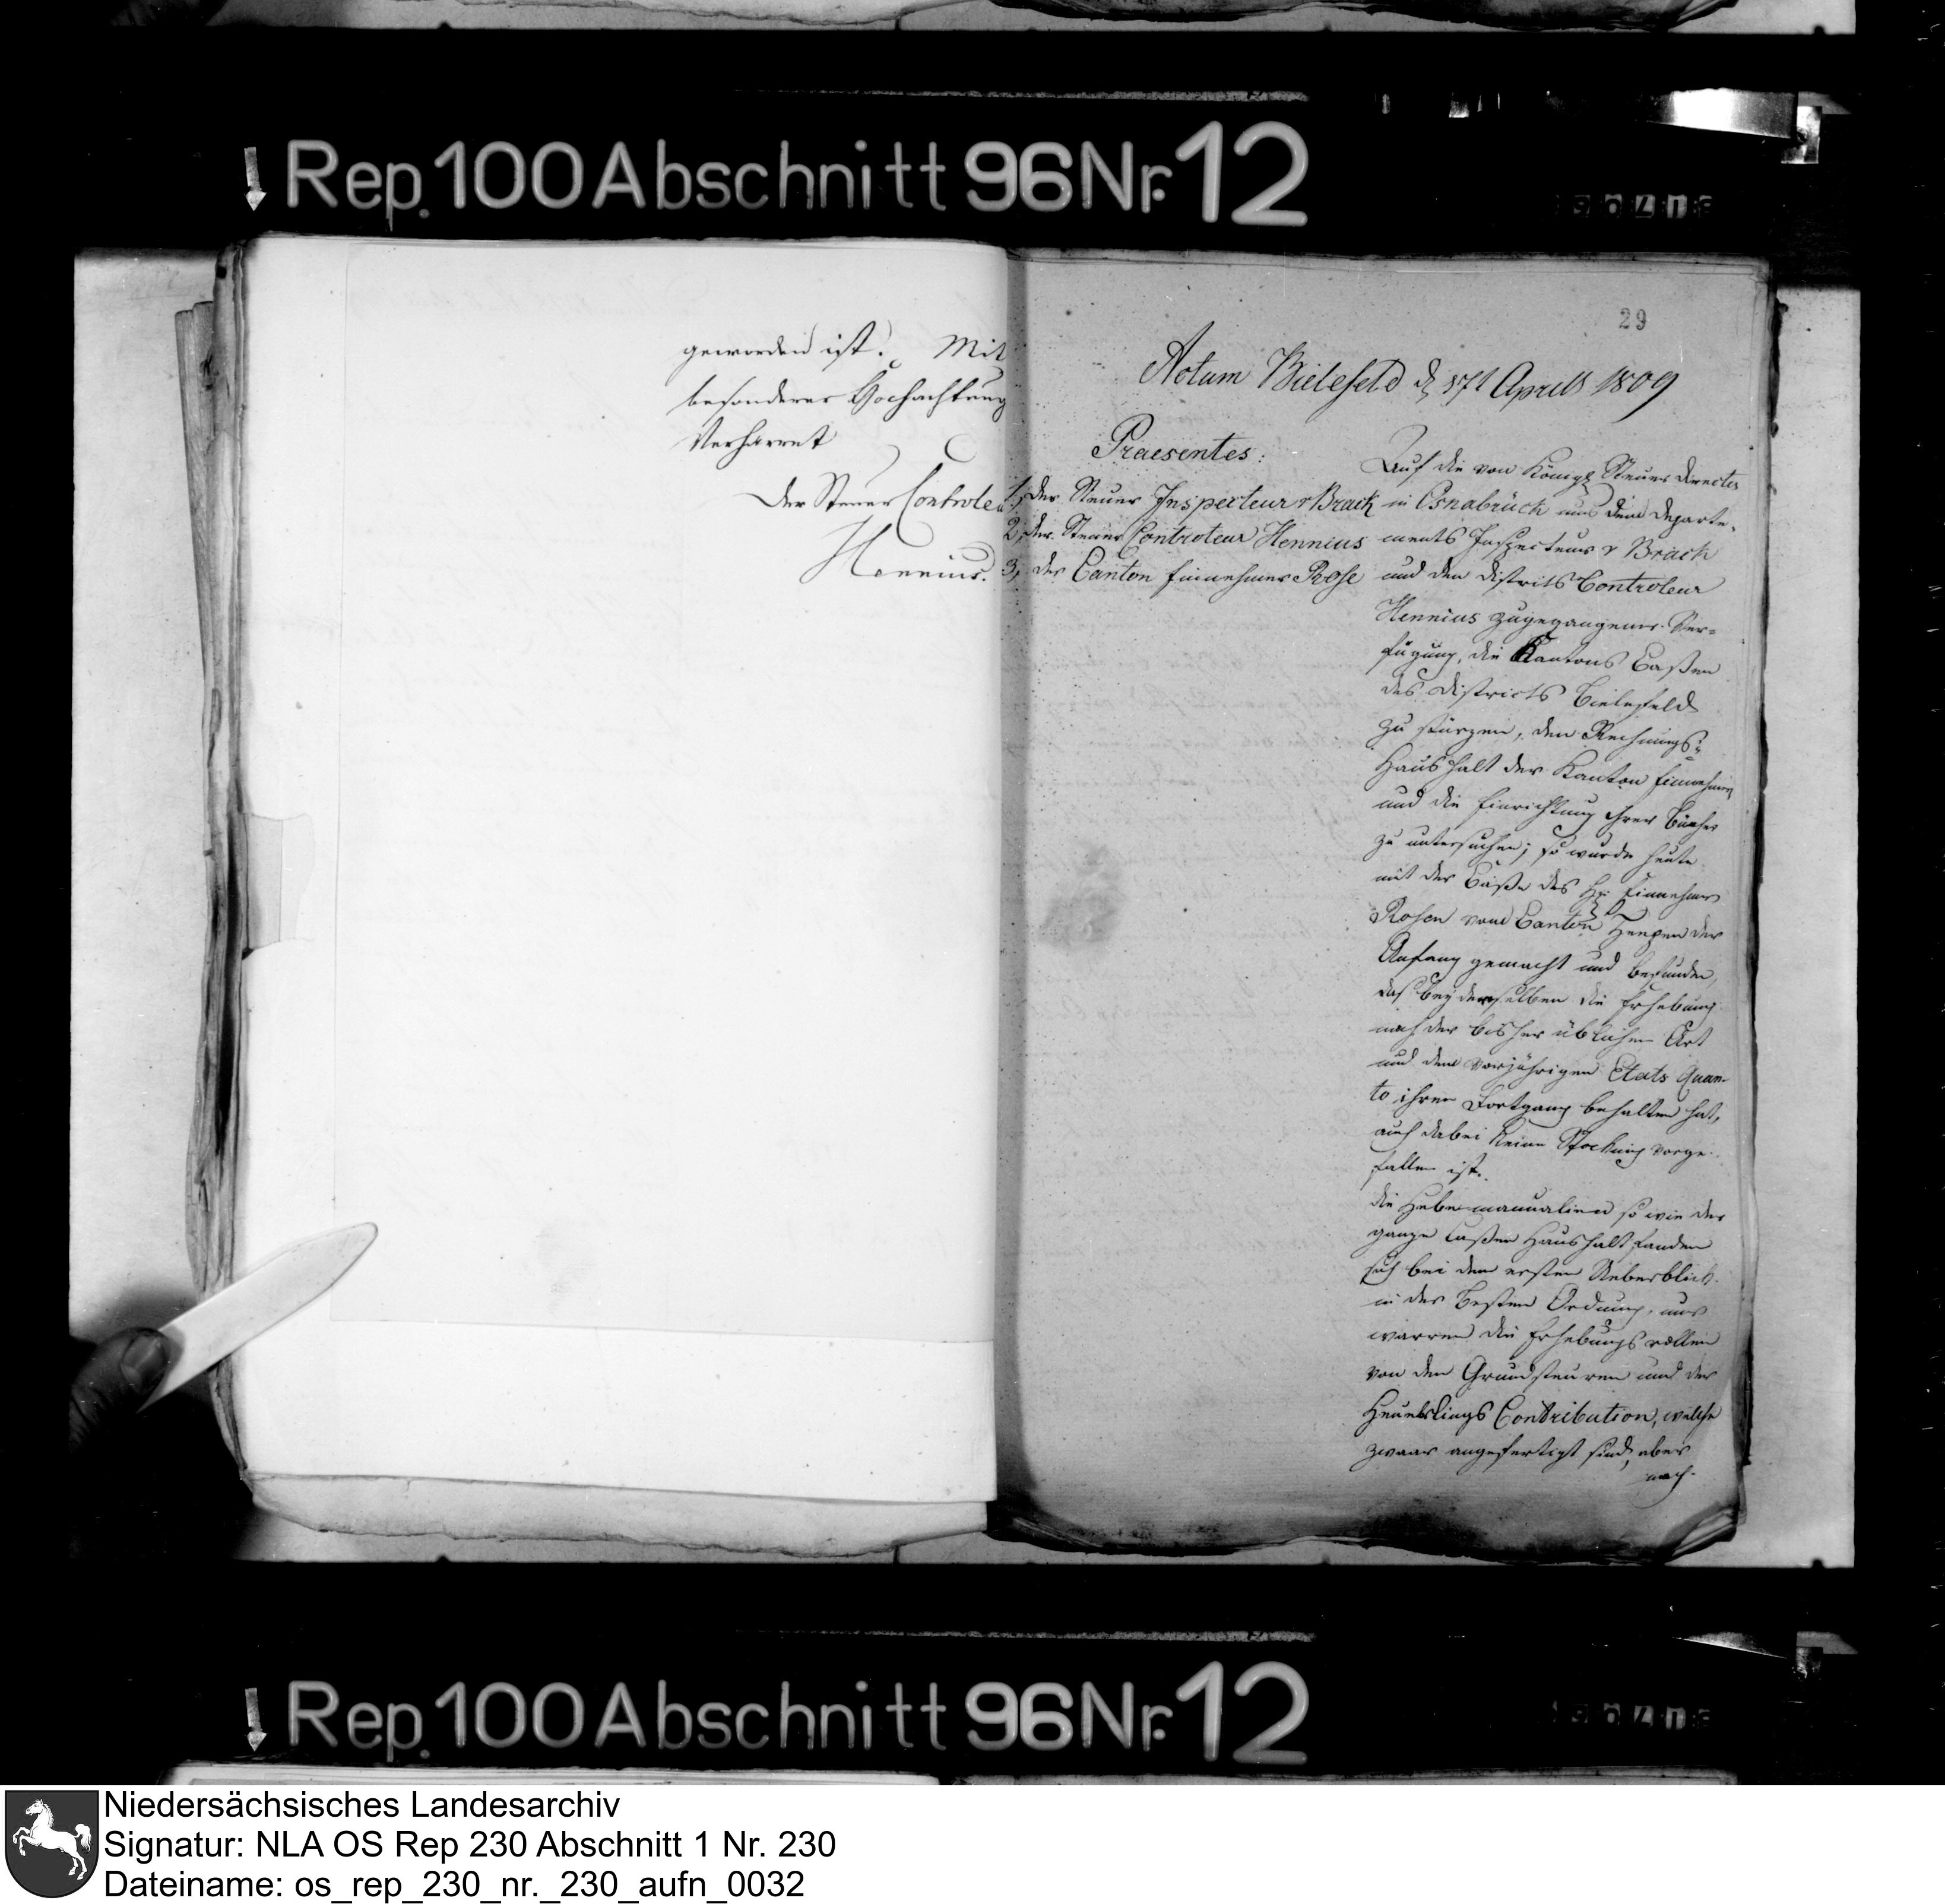 Rep. 100 Abschnitt 96 Nr. 12
geworden ist. Mit
besonderer Hochachtung
Verharret
Der Steuer Controleu
Hennius.
29
Actum Bielefeld d 17t Aprills 1809
Praesentes:
1, der Steuer Inspecteur v Brack
2, der Steuer Controleur Hennius
3, der Canton Einnehmer Rose
Auf die von Königl Steuer Direction
in Osnabrück uns dem Departe-
ments Inspecteur v Brack
und den Districts Controleur
Hennius zugegangener Ver=
fügung, die Kantons Caßen
des Districts Bielefeld
zu stürzen, den Rechnungs=
Haushalt der Kanton Einnehmer
und die Einrichtung ihrer Bücher
zu untersuchen; so wurde heute
mit der Caße des H. Einnehmer
Rosen vom Canton Heepen der
Anfang gemacht und befunden,
daß bey derselben die Erhebung
nach der bisher üblichen Art
und dem vorjährigen Etats Quan-
to ihren Fortgang behalten hat,
auch dabei keine Stockung vorge-
fallen ist.
die Hebemanualien so wie der
ganze Caßen Haushalt fanden
sich bei dem ersten Ueberblick
in der besten Ordnung, nur
warren die Erhebungs rollen
von den Grundsteuren und der
Heuerlings Contribution, welche
zwaar angefertigt sind, aber
noch-
Rep. 100 Abschnitt 96 Nr. 12
Niedersächsisches Landesarchiv
Signatur: NLA OS Rep 230 Abschnitt 1 Nr. 230
Dateiname: os_rep_230_nr._230_aufn_0032